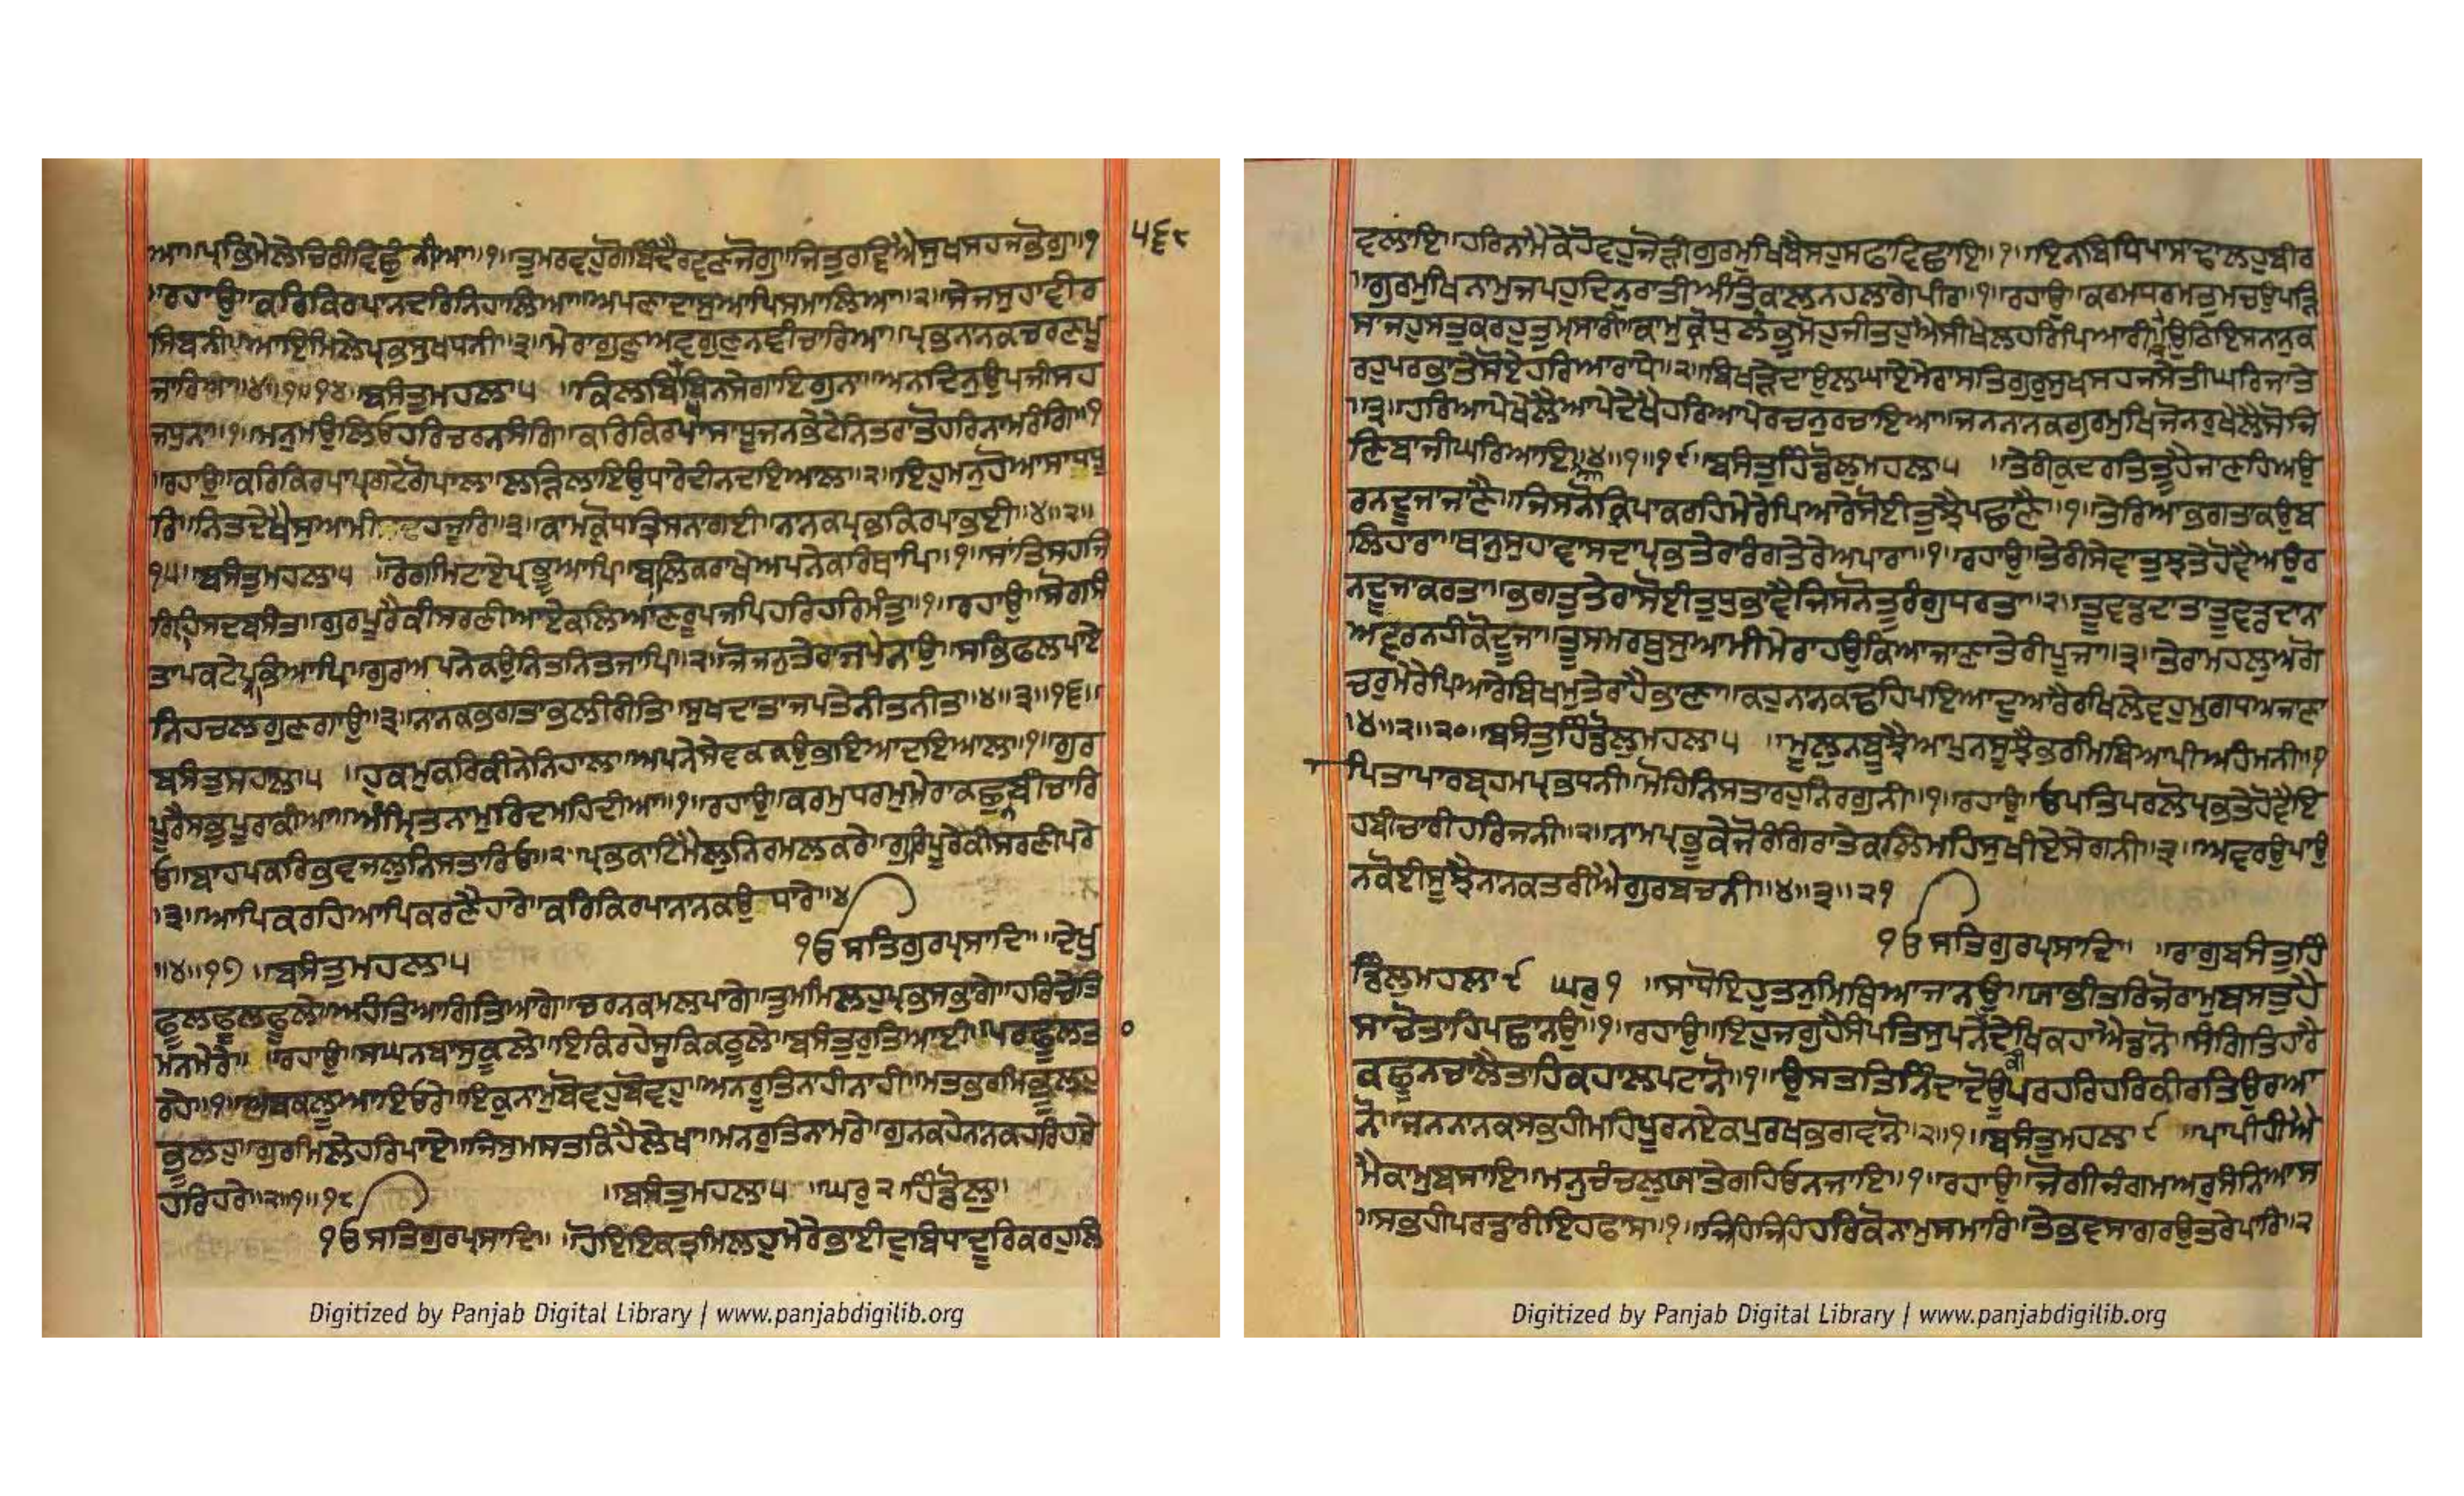 ਆ॥ਪ੍ਰਭਿਮੇਲੇਚਿਰੀਵਿਛੁੰਨੀਆ॥੧॥ਤੁਮਰਵਹੁਗੋਬਿੰਦੈਰਵਣਜੋਗੁ॥ਜਿਤੁਰਵਿਐਸੁਖਸਹਜਭੋਗੁ॥੧
੫੬੮
॥ਰਹਾਉ॥ਕਰਿਕਿਰਪਾਨਦਰਿਨਿਹਾਲਿਆ॥ਅਪਣਾਦਾਸੁਆਪਿਸਮਾਲਿਆ॥੨॥ਸੇਜਸੁਹਾਵੀਰ
ਸਿਬਨੀ॥ਆਇਮਿਲੇਪ੍ਰਭਸੁਖਧਨੀ॥੩॥ਮੇਰਾਗੁਣੁਅਵਗੁਣੁਨਵੀਚਾਰਿਆ॥ਪ੍ਰਭਨਾਨਕਚਰਣਪੂ
ਜਾਰਿਆ॥੪॥੧॥੧੪॥ਬਸੰਤੁਮਹਲਾ੫ ॥ਕਿਲਬਿਖਬਿਨਸੇਗਾਇਗੁਨਾ॥ਅਨਦਿਨਉਪਜੀਸਹ
ਜਧੁਨਾ॥੧॥ਮਨੁਮਉਲਿਓਹਰਿਚਰਨਸੰਗਿ॥ਕਰਿਕਿਰਪਾਸਾਧੂਜਨਭੇਟੇਨਿਤਰਾਤੋਹਰਿਨਾਮਰੰਗਿ॥੧
॥ਰਹਾਉ॥ਕਰਿਕਿਰਪਾਪ੍ਰਗਟੇਗੋਪਾਲਾ॥ਲੜਿਲਾਇਉਧਾਰੇਦੀਨਦਇਆਲਾ॥੨॥ਇਹੁਮਨੁਹੋਆਸਾਧਧੂ
ਰਿ॥ਨਿਤਦੇਖੈਸੁਆਮੀ ਹਜੂਰਿ॥੩॥ਕਾਮਕ੍ਰੋਧਤ੍ਰਿਸਨਾਗਈ॥ਨਾਨਕਪ੍ਰਭਕਿਰਪਾਭਈ॥੪॥੨॥
੧੫॥ਬਸੰਤੁਮਹਲਾ੫ ॥ਰੋਗਮਿਟਾਏਪ੍ਰਭੂਆਪਿ॥ਬਾਲਿਕਰਾਖੇਅਪਨੇਕਰਿਥਾਪਿ॥੧॥ਸਾਂਤਿਸਹਜਿ
ਗ੍ਰਿਹਿਸਦਬਸੰਤੁ॥ਗੁਰਪੂਰੇਕੀਸਰਣੀਆਏਕਲਿਆਣਰੂਪਜਪਿਹਰਿਹਰਿਮੰਤੁ॥੧॥ਰਹਾਉ॥ਸੋਗਸੰ
ਤਾਪਕਟੇਪ੍ਰਭਿਆਪਿ॥ਗੁਰਅਪਨੇਕਉਨਿਤਨਿਤਜਾਪਿ॥੨॥ਜੋਜਨੁਤੇਰਾਜਪੇਨਾਉ॥ਸਭਿਫਲਪਾਏ
ਨਿਹਚਲਗੁਣਗਾਉ॥੩॥ਨਾਨਕਭਗਤਾਭਲੀਰੀਤਿ॥ਸੁਖਦਾਤਾਜਪਤੇਨੀਤਨੀਤ॥੪॥੩॥੧੬॥
ਬਸੰਤੁਮਹਲਾ੫ ॥ਹੁਕਮੁਕਰਿਕੀਨੇਨਿਹਾਲਾ॥ਅਪਨੇਸੇਵਕਕਉਭਇਆਦਇਆਲਾ॥੧॥ਗੁਰ
ਪੂਰੈਸਭੁਪੂਰਾਕੀਆ॥ਅੰਮ੍ਰਿਤਨਾਮੁਰਿਦਮਹਿਦੀਆ॥੧॥ਰਹਾਉ॥ਕਰਮੁਧਰਮੁਮੇਰਾਕਛੁਨਬੀਚਾਰਿ
ਓ॥ਬਾਹਪਕਰਿਭਵਜਲੁਨਿਸਤਾਰਿਓ॥੨॥ਪ੍ਰਭਕਾਟਿਮੈਲੁਨਿਰਮਲਕਰੇ॥ਗੁਰਪੂਰੇਕੀਸਰਣੀਪਰੇ
॥੩॥ਆਪਿਕਰਹਿਆਪਿਕਰਣੈਹਾਰੇ॥ਕਰਿਕਿਰਪਾਨਾਨਕਉਧਾਰੇ॥੪
੧ਓਸਤਿਗੁਰਪ੍ਰਸਾਦਿ॥ ॥ਦੇਖੁ
॥੪॥੧੭ ॥ਬਸੰਤੁਮਹਲਾ੫
ਫੂਲਫੂਲਫੂਲੇ॥ਅਹੰਤਿਆਗਿਤਿਆਗੇ॥ਚਰਨਕਮਲਪਾਗੇ॥ਤੁਮਮਿਲਹੁਪ੍ਰਭਸਭਾਗੇ॥ਹਰਿਚੇਤਿ
ਮਨਮੇਰੇ॥ ॥ਰਹਾਉ॥ਸਘਨਬਾਸੁਕੂਲੇ॥ਇਕਿਰਹੇਸੂਕਿਕਠੂਲੇ॥ਬਸੰਤਰੁਤਿਆਈ॥ਪਰਫੂਲਤ
ਰਹੇ॥੧॥ਅਬਕਲੂਆਇਓਰੇ॥ਇਕੁਨਾਮੁਬੋਵਹੁਬੋਵਹੁ॥ਅਨਰੂਤਿਨਾਹੀਨਾਹੀ॥ਮਤਭਰਮਿਭੂਲਹੁ
ਭੂਲਹੁ॥ਗੁਰਮਿਲੇਹਰਿਪਾਏ॥ਜਿਸੁਮਸਤਕਿਹੈਲੇਖਾ॥ਮਨਰੁਤਿਨਾਮਰੇ॥ਗੁਨਕਹੇਨਾਨਕਹਰਿਹਰੇ
ਹਰਿਹਰੇ॥੨॥੧॥੧੮ ॥ਬਸੰਤੁਮਹਲਾ੫ ॥ਘਰੁ੨ਹਿੰਡੋਲੁ॥
੧ਓਸਤਿਗੁਰਪ੍ਰਸਾਦਿ॥ ॥ਹੋਇਇਕਤ੍ਰਮਿਲਹੁਮੇਰੇਭਾਈਦੁਬਿਧਾਦੂਰਿਕਰਹੁਲਿ
Digitized by Panjab Digital Library | www.panjabdigilib.org
ਵਲਾਇ॥ਹਰਿਨਾਮੈਕੇਹੋਵਹੁਜੋੜੀਗੁਰਮੁਖਿਬੈਸਹੁਸਫਾਵਿਛਾਇ॥੧॥ਇਨਬਿਧਿਪਾਸਾਢਾਲਹੁਬੀਰ
॥ਗੁਰਮੁਖਿਨਾਮੁਜਪਹੁਦਿਨੁਰਾਤੀਅੰਤਕਾਲਨਹਲਾਗੈਪੀਰ॥੧॥ਰਹਾਉ॥ਕਰਮਧਰਮਤੁਮਚਉਪੜਿ
ਸਾਜਹੁਸਤੁਕਰਹੁਤੁਮ੍ਸਾਰੀ॥ਕਾਮੁਕ੍ਰੋਧੁਲੋਭੁਮੋਹੁਜੀਤਹੁਐਸੀਖੇਲਹਰਿਪਿਆਰੀ॥ਉਠਿਇਸਨਾਨੁਕ
ਰਹੁਪਰਭਾਤੇਸੋਏਹਰਿਆਰਾਧੇ॥੨॥ਬਿਖੜੇਦਾਉਲਘਾਏਮੇਰਾਸਤਿਗੁਰੁਸੁਖਸਹਜਸੇਤੀਘਰਿਜਾਤੇ
॥੩॥ਹਰਿਆਪੇਖੇਲੈਆਪੇਦੇਖੈਹਰਿਆਪੇਰਚਨੁਰਚਾਇਆ॥ਜਨਨਾਨਕਗੁਰਮੁਖਿਜੋਨਰੁਖੇਲੈਸੋਜਿ
ਣਿਬਾਜੀਘਰਿਆਇਆ॥੪॥੧॥੧੯॥ਬਸੰਤੁਹਿੰਡੋਲੁਮਹਲਾ੫ ॥ਤੇਰੀਕੁਦਰਤਿਤੂਹੈਜਾਣਹਿਅਉ
ਰਨਦੂਜਾਜਾਣੈ॥ਜਿਸਨੋਕ੍ਰਿਪਾਕਰਹਿਮੇਰੇਪਿਆਰੇਸੋਈਤੁਝੈਪਛਾਣੈ॥੧॥ਤੇਰਿਆਭਗਤਾਕਉਬ
ਲਿਹਾਰਾ॥ਥਾਨੁਸੁਹਾਵਾਸਦਾਪ੍ਰਭਤੇਰਾਰੰਗਤੇਰੇਅਪਾਰਾ॥੧॥ਰਹਾਉ॥ਤੇਰੀਸੇਵਾਤੁਝਤੇਹੋਵੈਅਉਰ
ਨਦੂਜਾਕਰਤਾ॥ਭਗਤੁਤੇਰਾਸੋਈਤੁਧੁਭਾਵੈਜਿਸਨੋਤੂਰੰਗੁਧਰਤਾ॥੨॥ਤੂਵਡਦਾਤਾਤੂਵਡਦਾਨਾ
ਅਵਰੁਨਹੀਕੋਦੂਜਾ॥ਤੂਸਮਰਥੁਸੁਆਮੀਮੇਰਾਹਉਕਿਆਜਾਣਾਤੇਰੀਪੂਜਾ॥੩॥ਤੇਰਾਮਹਲੁਅਗੋ
ਚਰੁਮੇਰੇਪਿਆਰੇਬਿਖਮੁਤੇਰਾਹੈਭਾਣਾ॥ਕਹੁਨਾਨਕਢਹਿਪਇਆਦੁਆਰੈਰਖਿਲੇਵਹੁਮੁਗਧਅਜਾਣਾ
॥੪॥੨॥੨੦॥ਬਸੰਤੁਹਿੰਡੋਲੁਮਹਲਾ੫ ॥ਮੂਲੁਨਬੂਝੈਆਪੁਨਸੂਝੈਭਰਮਿਬਿਆਪੀਅਹੰਮਨੀ॥੧
॥ਪਿਤਾਪਾਰਬ੍ਰਹਮਪ੍ਰਭਧਨੀ॥ਮੋਹਿਨਿਸਤਾਰਹੁਨਿਰਗੁਨੀ॥੧॥ਰਹਾਉ॥ਓਪਤਿਪਰਲੋਪ੍ਰਭਤੇਹੋਵੈਇ
ਹਬੀਚਾਰੀਹਰਿਜਨੀ॥੨॥ਨਾਮਪ੍ਰਭੂਕੇਜੋਰੰਗਿਰਾਤੇਕਲਿਮਹਿਸੁਖੀਏਸੇਗਨੀ॥੩॥ਅਵਰਉਪਾਉ
ਨਕੋਈਸੂਝੈਨਾਨਕਤਰੀਐਗੁਰਬਚਨੀ॥੪॥੩॥੨੧
੧ਓਸਤਿਗੁਰਪ੍ਰਸਾਦਿ॥ ॥ਰਾਗੁਬਸੰਤੁਹਿੰ
ਡੋਲੁਮਹਲਾ੯ ਘਰੁ੧ ॥ਸਾਧੋਇਹੁਤਨੁਮਿਥਿਆਜਾਨਉ॥ਯਾਭੀਤਰਿਜੋਰਾਮੁਬਸਤੁਹੈ
ਸਾਚੋਤਾਹਿਪਛਾਨਉ॥੧॥ਰਹਾਉ॥ਇਹੁਜਗੁਹੈਸੰਪਤਿਸੁਪਨੇਦੇਖਿਕਹਾਐਡਾਨੋ॥ਸੰਗਿਤਿਹਾਰੈ
ਕਛੂਨਚਾਲੈਤਾਹਿਕਹਾਲਪਟਾਨੋ॥੧॥ਉਸਤਤਿਨਿੰਦਾਦੋਊਪਰਹਰਿਹਰਿਕੀਰਤਿਉਰਆ
ਨੋ॥ਜਨਨਾਨਕਸਭਹੀਮਹਿਪੂਰਨਏਕਪੁਰਖਭਗਵਾਨੋ॥੨॥੧॥ਬਸੰਤੁਮਹਲਾ੯ ॥ਪਾਪੀਹੀਐ
ਮੈਕਾਮੁਬਸਾਇ॥ਮਨੁਚੰਚਲੁਯਾਤੇਗਹਿਓਨਜਾਇ॥੧॥ਰਹਾਉ॥ਜੋਗੀਜੰਗਮਅਰੁਸੰਨਿਆਸ
॥ਸਭਹੀਪਰਡਾਰੀਇਹਫਾਸ॥੧॥ਜਿਹਿਜਿਹਿਹਰਿਕੋਨਾਮੁਸਮਾਰਿ॥ਤੇਭਵਸਾਗਰਉਤਰੇਪਾਰਿ॥੨
Digitized by Panjab Digital Library | www.panjabdigilib.org